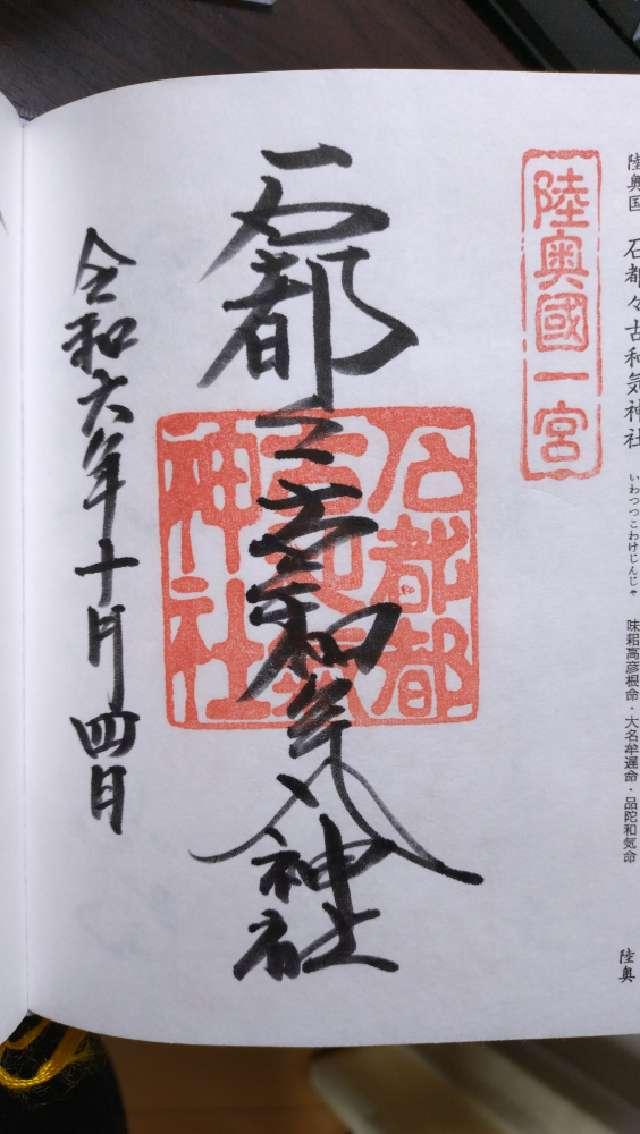 陸奥国 石都々古和気神社 いわつつこわけじんじゃ 味耜高彦根命・大名牟遅命・品陀和気命 陸奥
陸奥國一宮
石都々古和気神社
石都都
古和氣
神社
令和六年十月四日